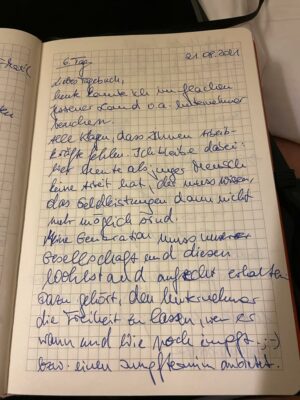 6. Tag. 21.08.2021
Liebes Tagebuch,
heute konnte ich im flachen
Land o.a. Unternehmer
besuchen.
Alle klagen, dass Ihnen Arbeit-
kräfte fehlen. Ich bleibe dabei:
Wer heute als junger Mensch
keine Arbeit hat, der muss wissen,
das Geldleistungen dann nicht
mehr möglich sind.
Meine Generation muss unsere
Gesellschaft und diesen
Wohlstand aufrecht erhalten
Dazu gehört, den Unternehmer
die Freiheit zu lassen, wen er
wann und wie noch impft ;-)
bzw. einen Impftermin anbietet.